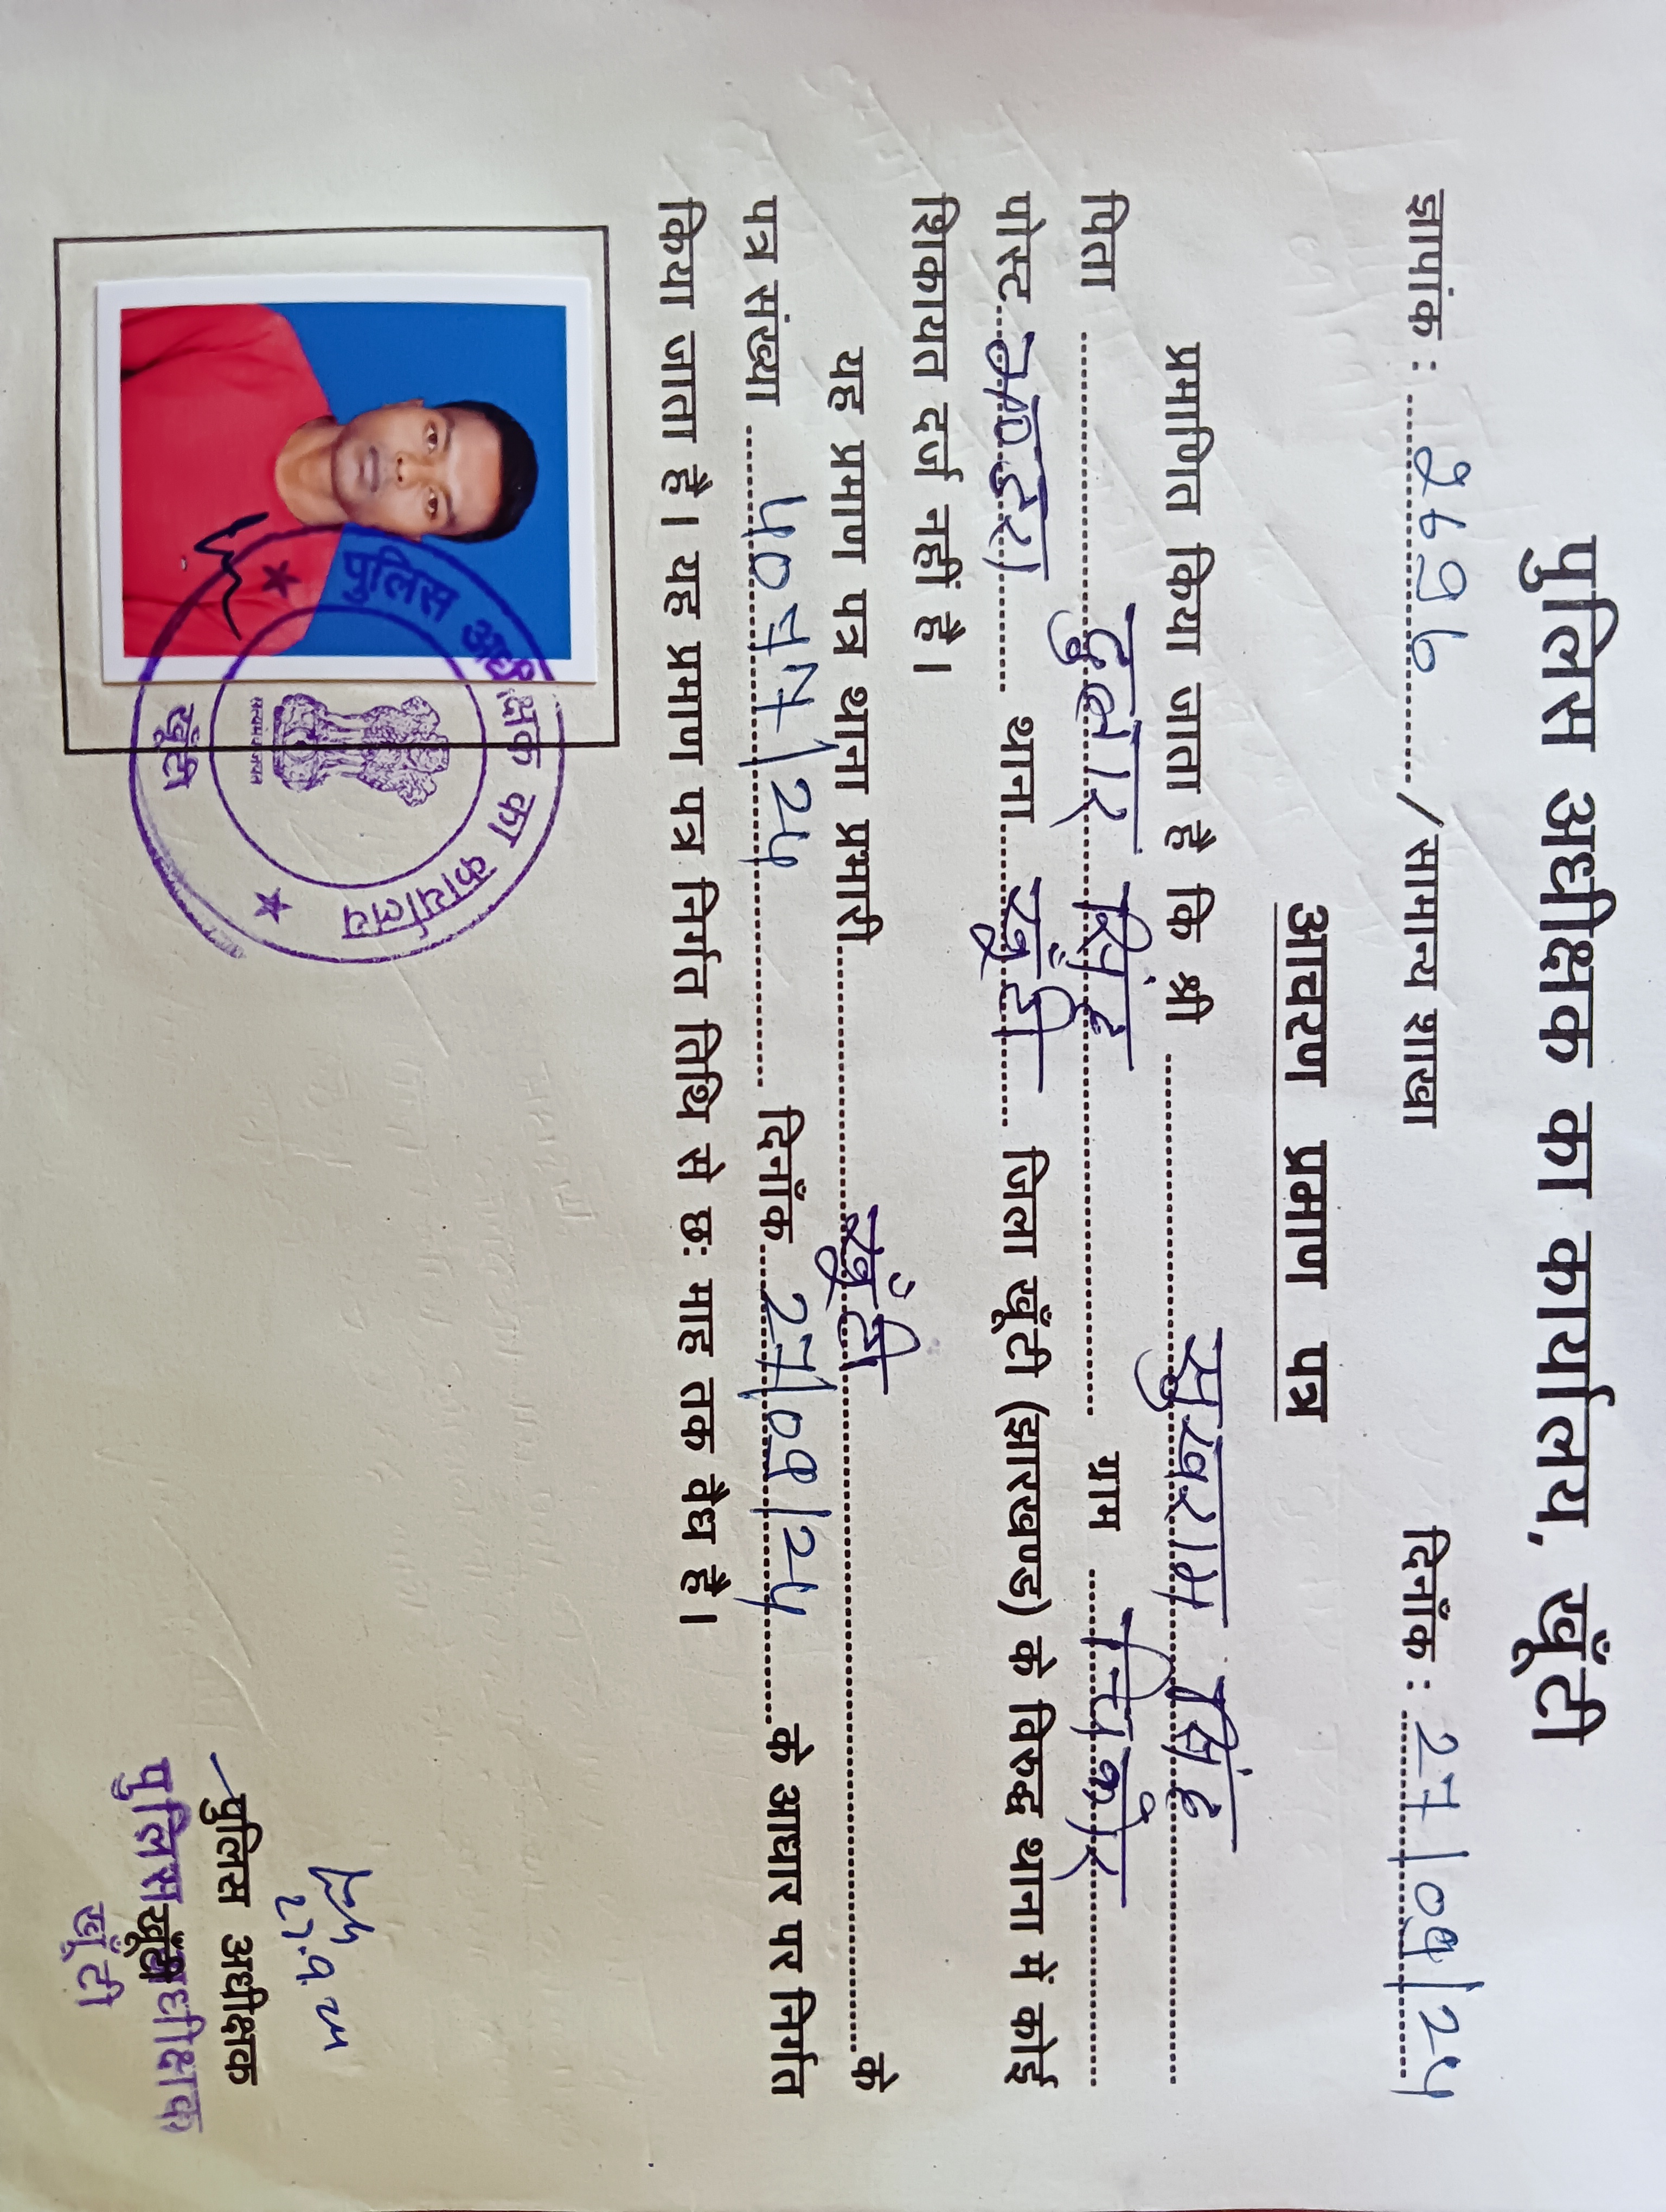 पुलिस अधीक्षक का कार्यालय, खूँटी
ज्ञापांक : 2696 / सामान्य शाखा दिनाँक : 27/09/24
आचरण प्रमाण पत्र
प्रमाणित किया जाता है कि श्री सुखराम सिंह
पिता दुलार सिंह ग्राम चिकोर
पोस्ट थाना खूँटी जिला खूँटी (झारखण्ड) के विरुद्ध थाना में कोई
शिकायत दर्ज नहीं है।
यह प्रमाण पत्र थाना प्रभारी खूँटी के
पत्र संख्या दिनाँक 27/09/24 के आधार पर निर्गत
किया जाता है। यह प्रमाण पत्र निर्गत तिथि से छः माह तक वैध है।
पुलिस अधीक्षक का कार्यालय
सत्यमेव जयते
खूँटी
27.9.24
पुलिस अधीक्षक
खूँटी
पुलिस अधीक्षक
खूँटी